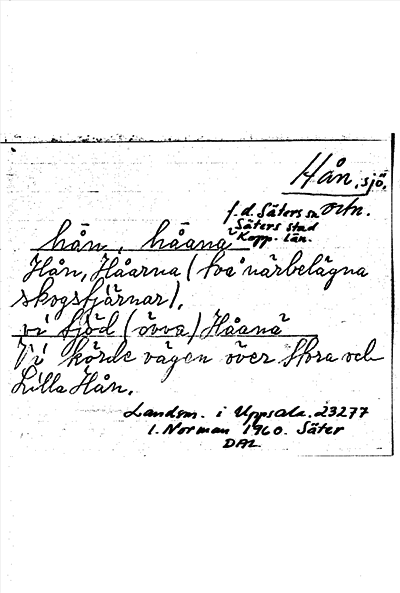 Hån, sjö,
ortn.
f.d. Säters sn
Säters stad
Kopp. län.
hån, håana
Hån, Håarna (två närbelägna
skogstjärnar).
vi tjöd (övva) Håana
Vi körde vägen över Stora och
Lilla Hån.
Landsm. i Uppsala. 23277
I. Norman 1960. Säter
DAL